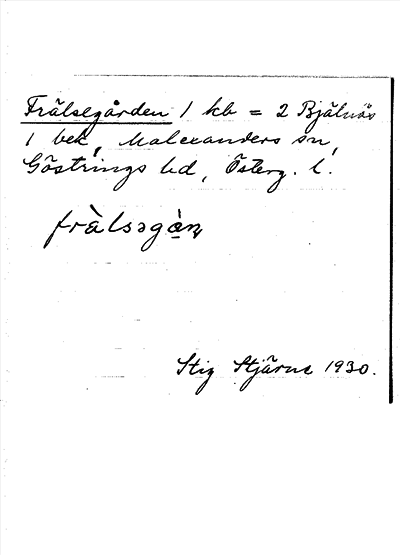 Frälsegården 1 kb = 2 Bjälnäs
1 bek, Malexanders sn,
Göstrings hd, Österg. l.
fràlsəgàṇ
Stig Stjärne 1930.